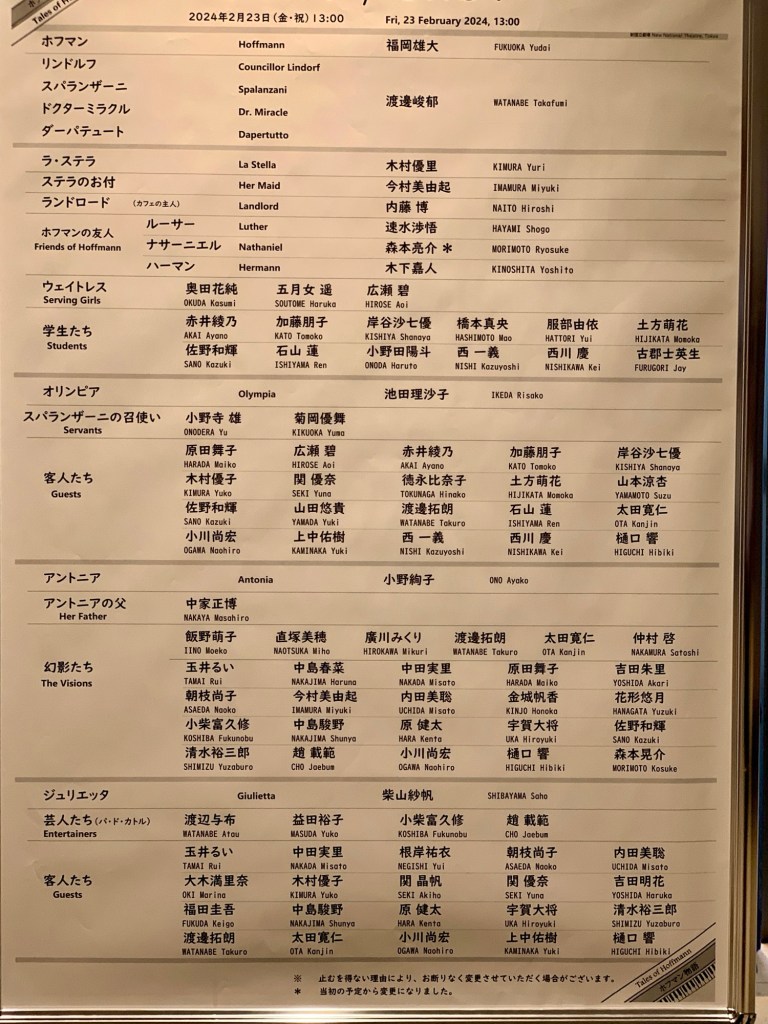 Tales of Ho
2024年2月23日(金・祝)13:00 Fri, 23 February 2024, 13:00
新国立劇場 New National Theatre, Tokyo
ホフマン Hoffmann 福岡雄大 FUKUOKA Yudai
リンドルフ Councillor Lindorf
スパランザーニ Spalanzani
ドクターミラクル Dr. Miracle 渡邊峻郁 WATANABE Takafumi
ダーパテュート Dapertutto
ラ・ステラ La Stella 木村優里 KIMURA Yuri
ステラのお付 Her Maid 今村美由起 IMAMURA Miyuki
ランドロード (カフェの主人) Landlord 内藤 博 NAITO Hiroshi
ホフマンの友人 Friends of Hoffmann
ルーサー Luther 速水渉悟 HAYAMI Shogo
ナサーニエル Nathaniel 森本亮介 * MORIMOTO Ryosuke
ハーマン Hermann 木下嘉人 KINOSHITA Yoshito
ウェイトレス 奥田花純 五月女 遥 広瀬 碧
Serving Girls OKUDA Kasumi SOUTOME Haruka HIROSE Aoi
学生たち Students
赤井綾乃 加藤朋子 岸谷沙七優 橋本真央 服部由依 土方萌花
AKAI Ayano KATO Tomoko KISHIYA Shanaya HASHIMOTO Mao HATTORI Yui HIJIKATA Momoka
佐野和輝 石山 蓮 小野田陽斗 西 一義 西川 慶 古郡士英生
SANO Kazuki ISHIYAMA Ren ONODA Haruto NISHI Kazuyoshi NISHIKAWA Kei FURUGORI Jay
オリンピア Olympia 池田理沙子 IKEDA Risako
スパランザーニの召使い 小野寺 雄 菊岡優舞
Servants ONODERA Yu KIKUOKA Yuma
客人たち Guests
原田舞子 広瀬 碧 赤井綾乃 加藤朋子 岸谷沙七優
HARADA Maiko HIROSE Aoi AKAI Ayano KATO Tomoko KISHIYA Shanaya
木村優子 関 優奈 徳永比奈子 土方萌花 山本涼杏
KIMURA Yuko SEKI Yuna TOKUNAGA Hinako HIJIKATA Momoka YAMAMOTO Suzu
佐野和輝 山田悠貴 渡邊拓朗 石山 蓮 太田寛仁
SANO Kazuki YAMADA Yuki WATANABE Takuro ISHIYAMA Ren OTA Kanjin
小川尚宏 上中佑樹 西 一義 西川 慶 樋口 響
OGAWA Naohiro KAMINAKA Yuki NISHI Kazuyoshi NISHIKAWA Kei HIGUCHI Hibiki
アントニア Antonia 小野絢子 ONO Ayako
アントニアの父 中家正博
Her Father NAKAYA Masahiro
幻影たち The Visions
飯野萌子 直塚美穂 廣川みくり 渡邊拓朗 太田寛仁 仲村 啓
IINO Moeko NAOTSUKA Miho HIROKAWA Mikuri WATANABE Takuro OTA Kanjin NAKAMURA Satoshi
玉井るい 中島春菜 中田実里 原田舞子 吉田朱里
TAMAI Rui NAKAJIMA Haruna NAKADA Misato HARADA Maiko YOSHIDA Akari
朝枝尚子 今村美由起 内田美聡 金城帆香 花形悠月
ASAEDA Naoko IMAMURA Miyuki UCHIDA Misato KINJO Honoka HANAGATA Yuzuki
小柴富久修 中島駿野 原 健太 宇賀大将 佐野和輝
KOSHIBA Fukunobu NAKAJIMA Shunya HARA Kenta UKA Hiroyuki SANO Kazuki
清水裕三郎 趙 載範 小川尚宏 樋口 響 森本晃介
SHIMIZU Yuzaburo CHO Jaebum OGAWA Naohiro HIGUCHI Hibiki MORIMOTO Kosuke
ジュリエッタ Giulietta 柴山紗帆 SHIBAYAMA Saho
芸人たち(パ・ド・カトル) 渡辺与布 益田裕子 小柴富久修 趙 載範
Entertainers WATANABE Atau MASUDA Yuko KOSHIBA Fukunobu CHO Jaebum
客人たち Guests
玉井るい 中田実里 根岸祐衣 朝枝尚子 内田美聡
TAMAI Rui NAKADA Misato NEGISHI Yui ASAEDA Naoko UCHIDA Misato
大木満里奈 木村優子 関 晶帆 関 優奈 吉田明花
OKI Marina KIMURA Yuko SEKI Akiho SEKI Yuna YOSHIDA Haruka
福田圭吾 中島駿野 原 健太 宇賀大将 清水裕三郎
FUKUDA Keigo NAKAJIMA Shunya HARA Kenta UKA Hiroyuki SHIMIZU Yuzaburo
渡邊拓朗 太田寛仁 小川尚宏 上中佑樹 樋口 響
WATANABE Takuro OTA Kanjin OGAWA Naohiro KAMINAKA Yuki HIGUCHI Hibiki
※ 止むを得ない理由により、お断りなく変更させていただく場合がございます。
* 当初の予定から変更になりました。
Tales of Hoffmann
ホフマン物語